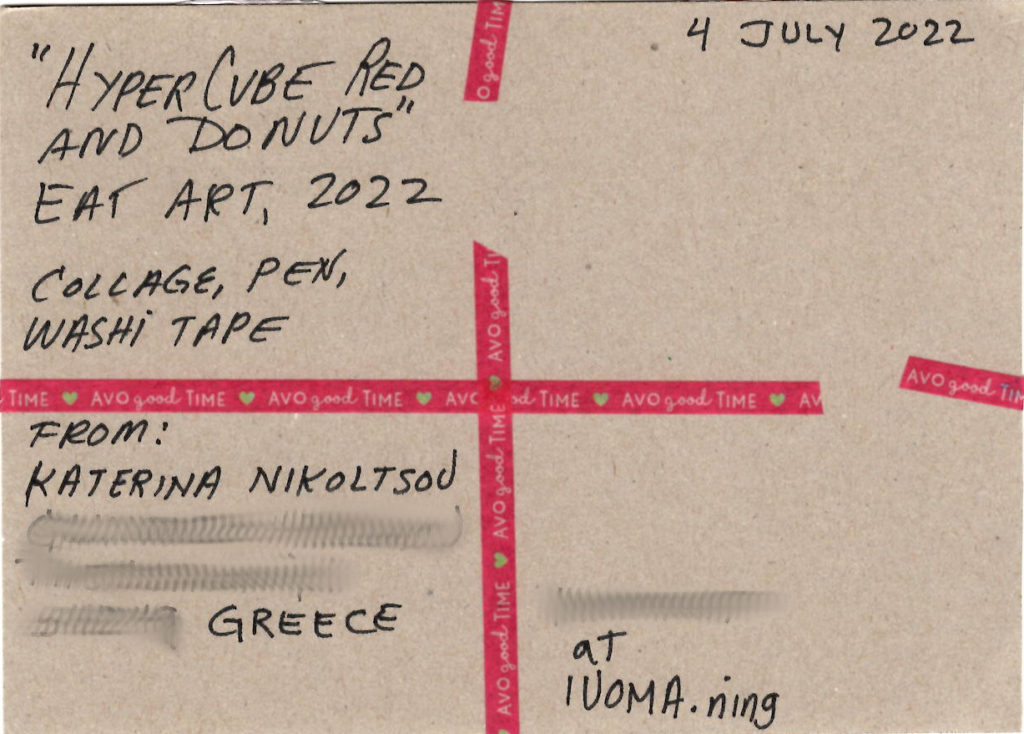 4 JULY 2022
"HYPERCUBE RED
AND DONUTS"
EAT ART, 2022
COLLAGE, PEN,
WASHI TAPE
O good TIM
AVO good TI
TIME AVO good TIME AVO good TIME AVO od TIME AVO good TIME AV
AVO good TIM
AVO good TIME
AVO good TIME
FROM:
KATERINA NIKOLTSOU
GREECE
at
IUOMA.ning